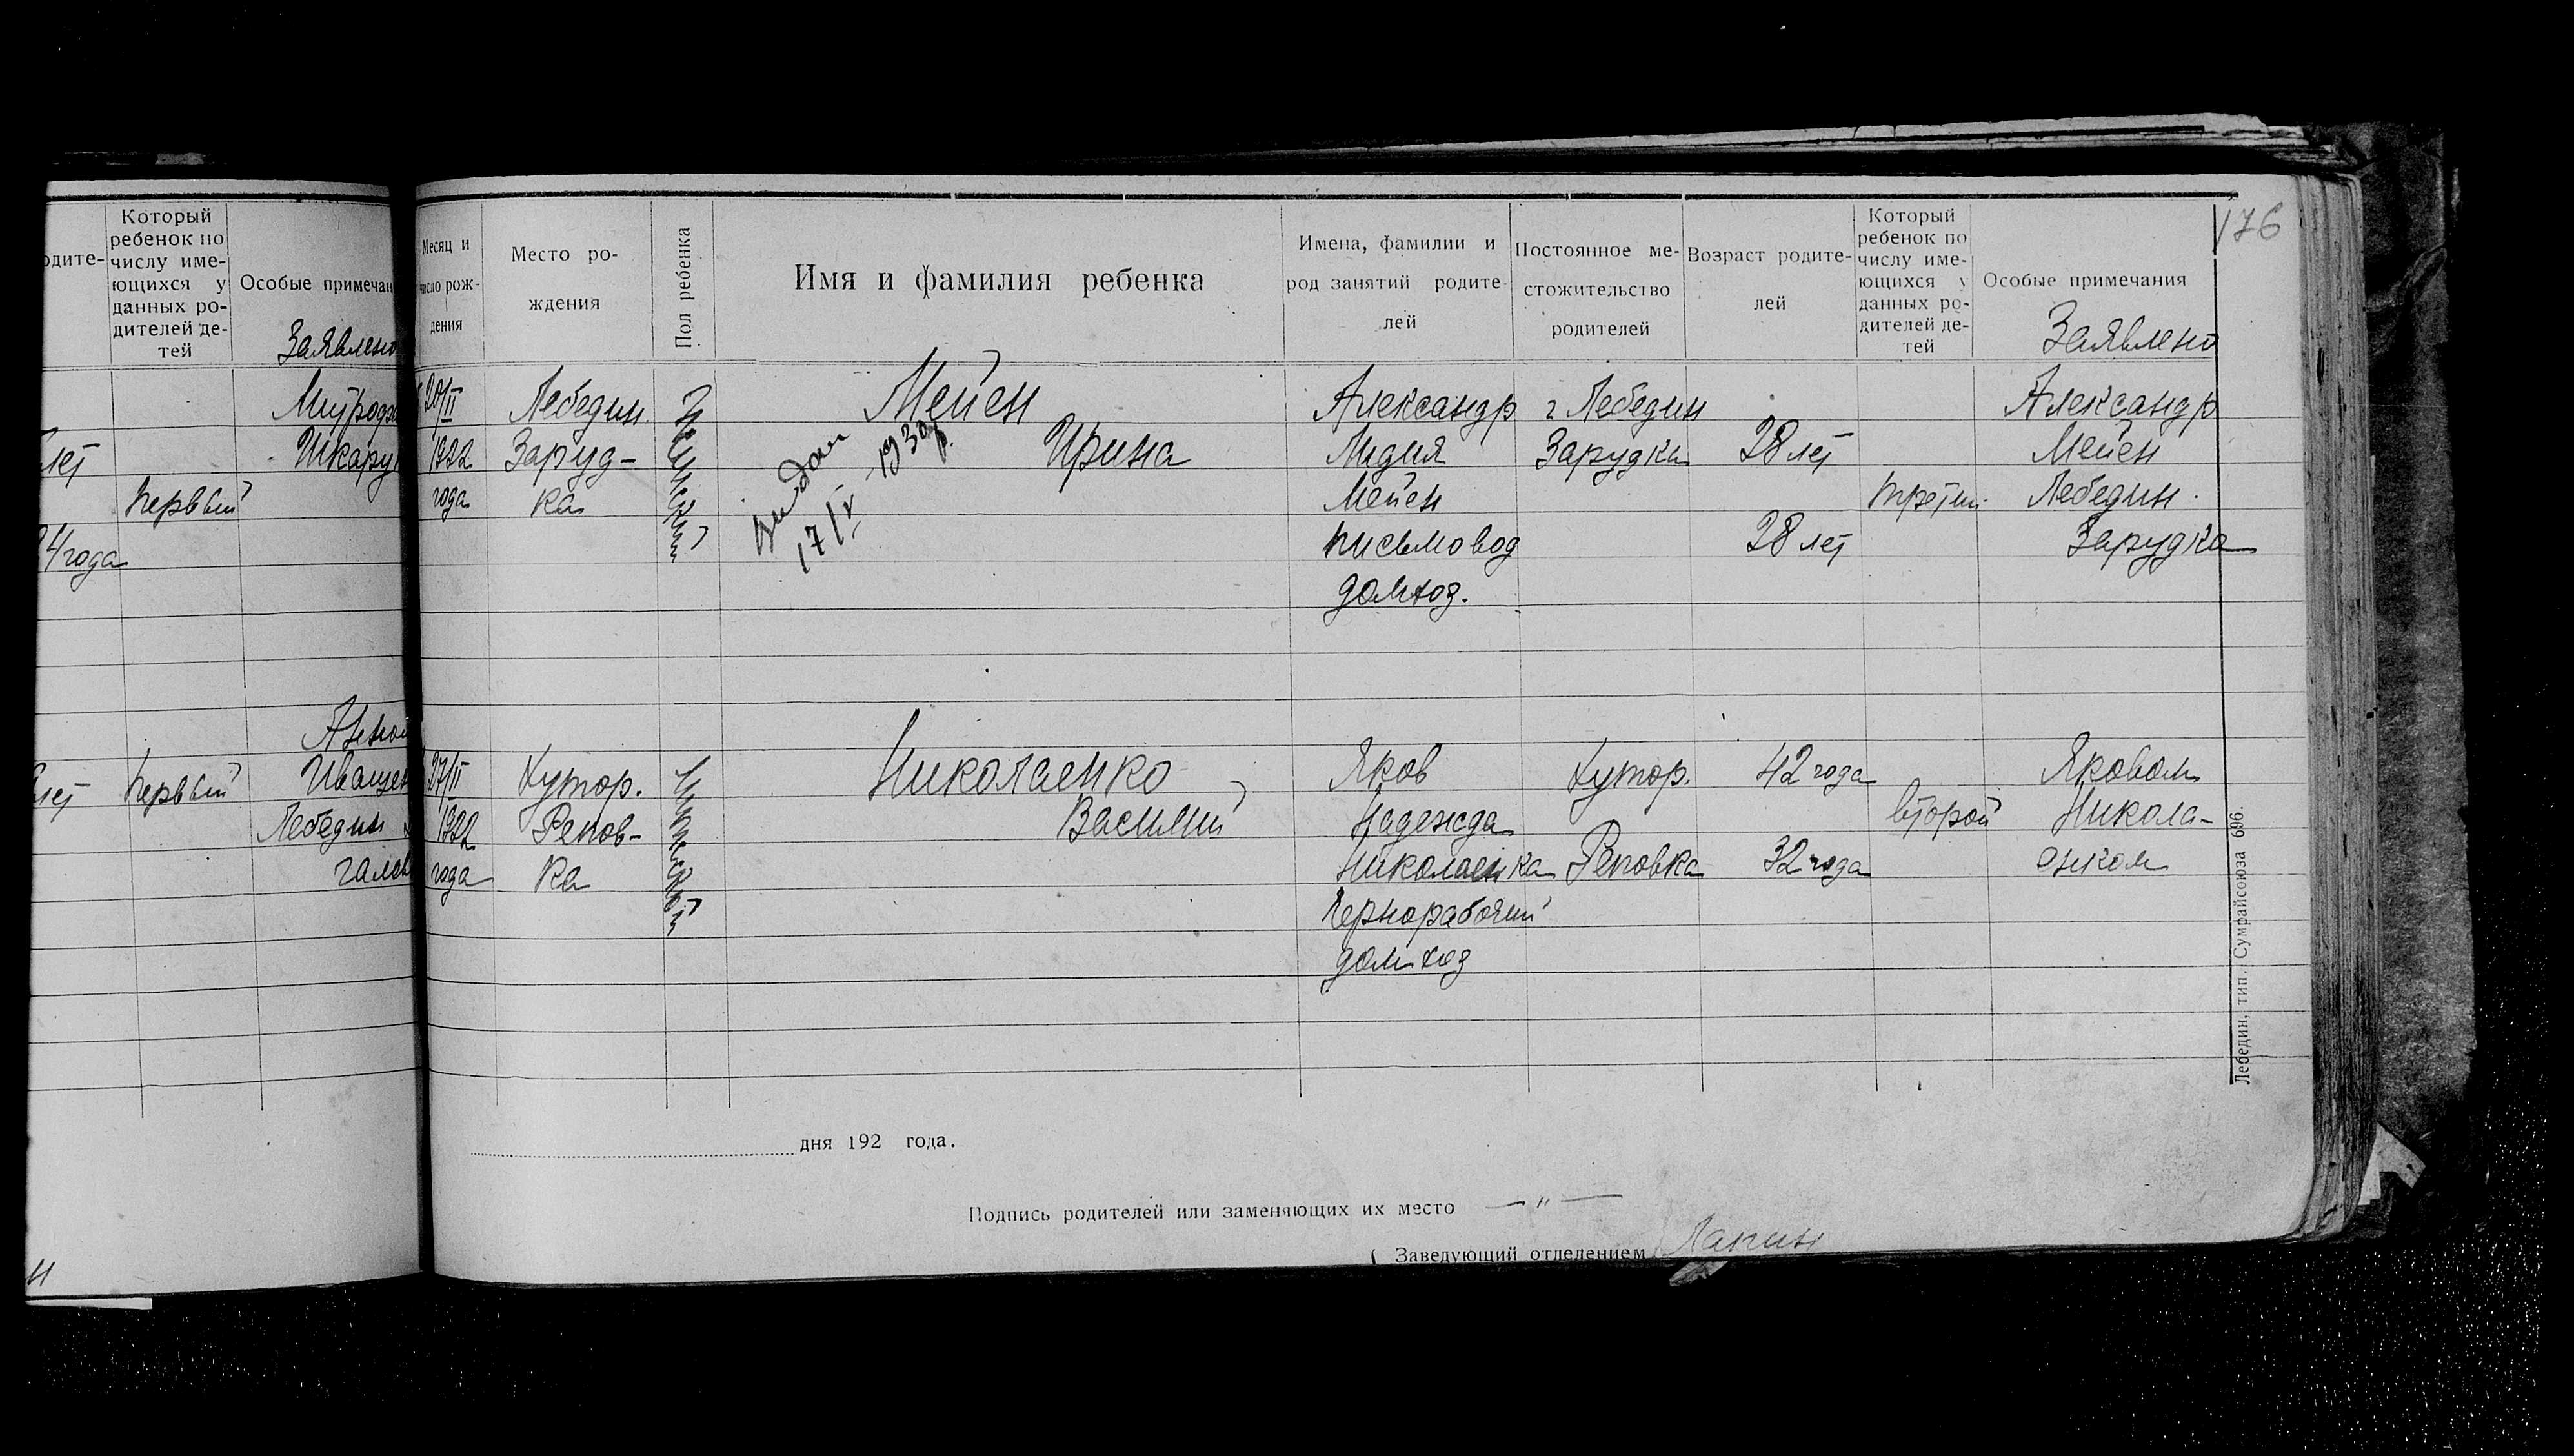 одите-
Который
ребенок по
числу име-
ющихся у
данных ро-
дителей де-
тей
Особые примечан
Заявлено
лет
Первый
24 года
Шкару
лет
Первый
Анной
Иващен
Лебедин
Месяц и
число рож-
дения
Место ро-
ждения
Пол ребенка
Имя и фамилия ребенка
Имена, фамилии и
род занятий родите-
лей
Постоянное ме-
стожительство
родителей
Возраст родите-
лей
Который
ребенок по
числу име-
ющихся у
данных ро-
дителей де-
тей
Особые примечания
Заявлено
176
20/II
1922
года
Лебедин.
Заруд-
ка
Женский
Мейен
Ирина
17/V 1930 р.
Александр
Лидия
Мейен
письмовод
домхоз.
г Лебедин
Зарудка
28 лет
28 лет
третий
Александр
Мейен
Лебедин.
Зарудка
27/II
1922
года
Хутор.
Репов-
ка
Мужской
Николаенко
Василий
Яков
Надежда
Николаенка
Чернорабочий
домхоз
Хутор.
Реповка
42 года
32 года
второй
Яковом
Никола-
енком
Лебедин, тип. Сумрайсоюза 696.
дня 192 года.
Подпись родителей или заменяющих их место — " —
Заведующий отделением